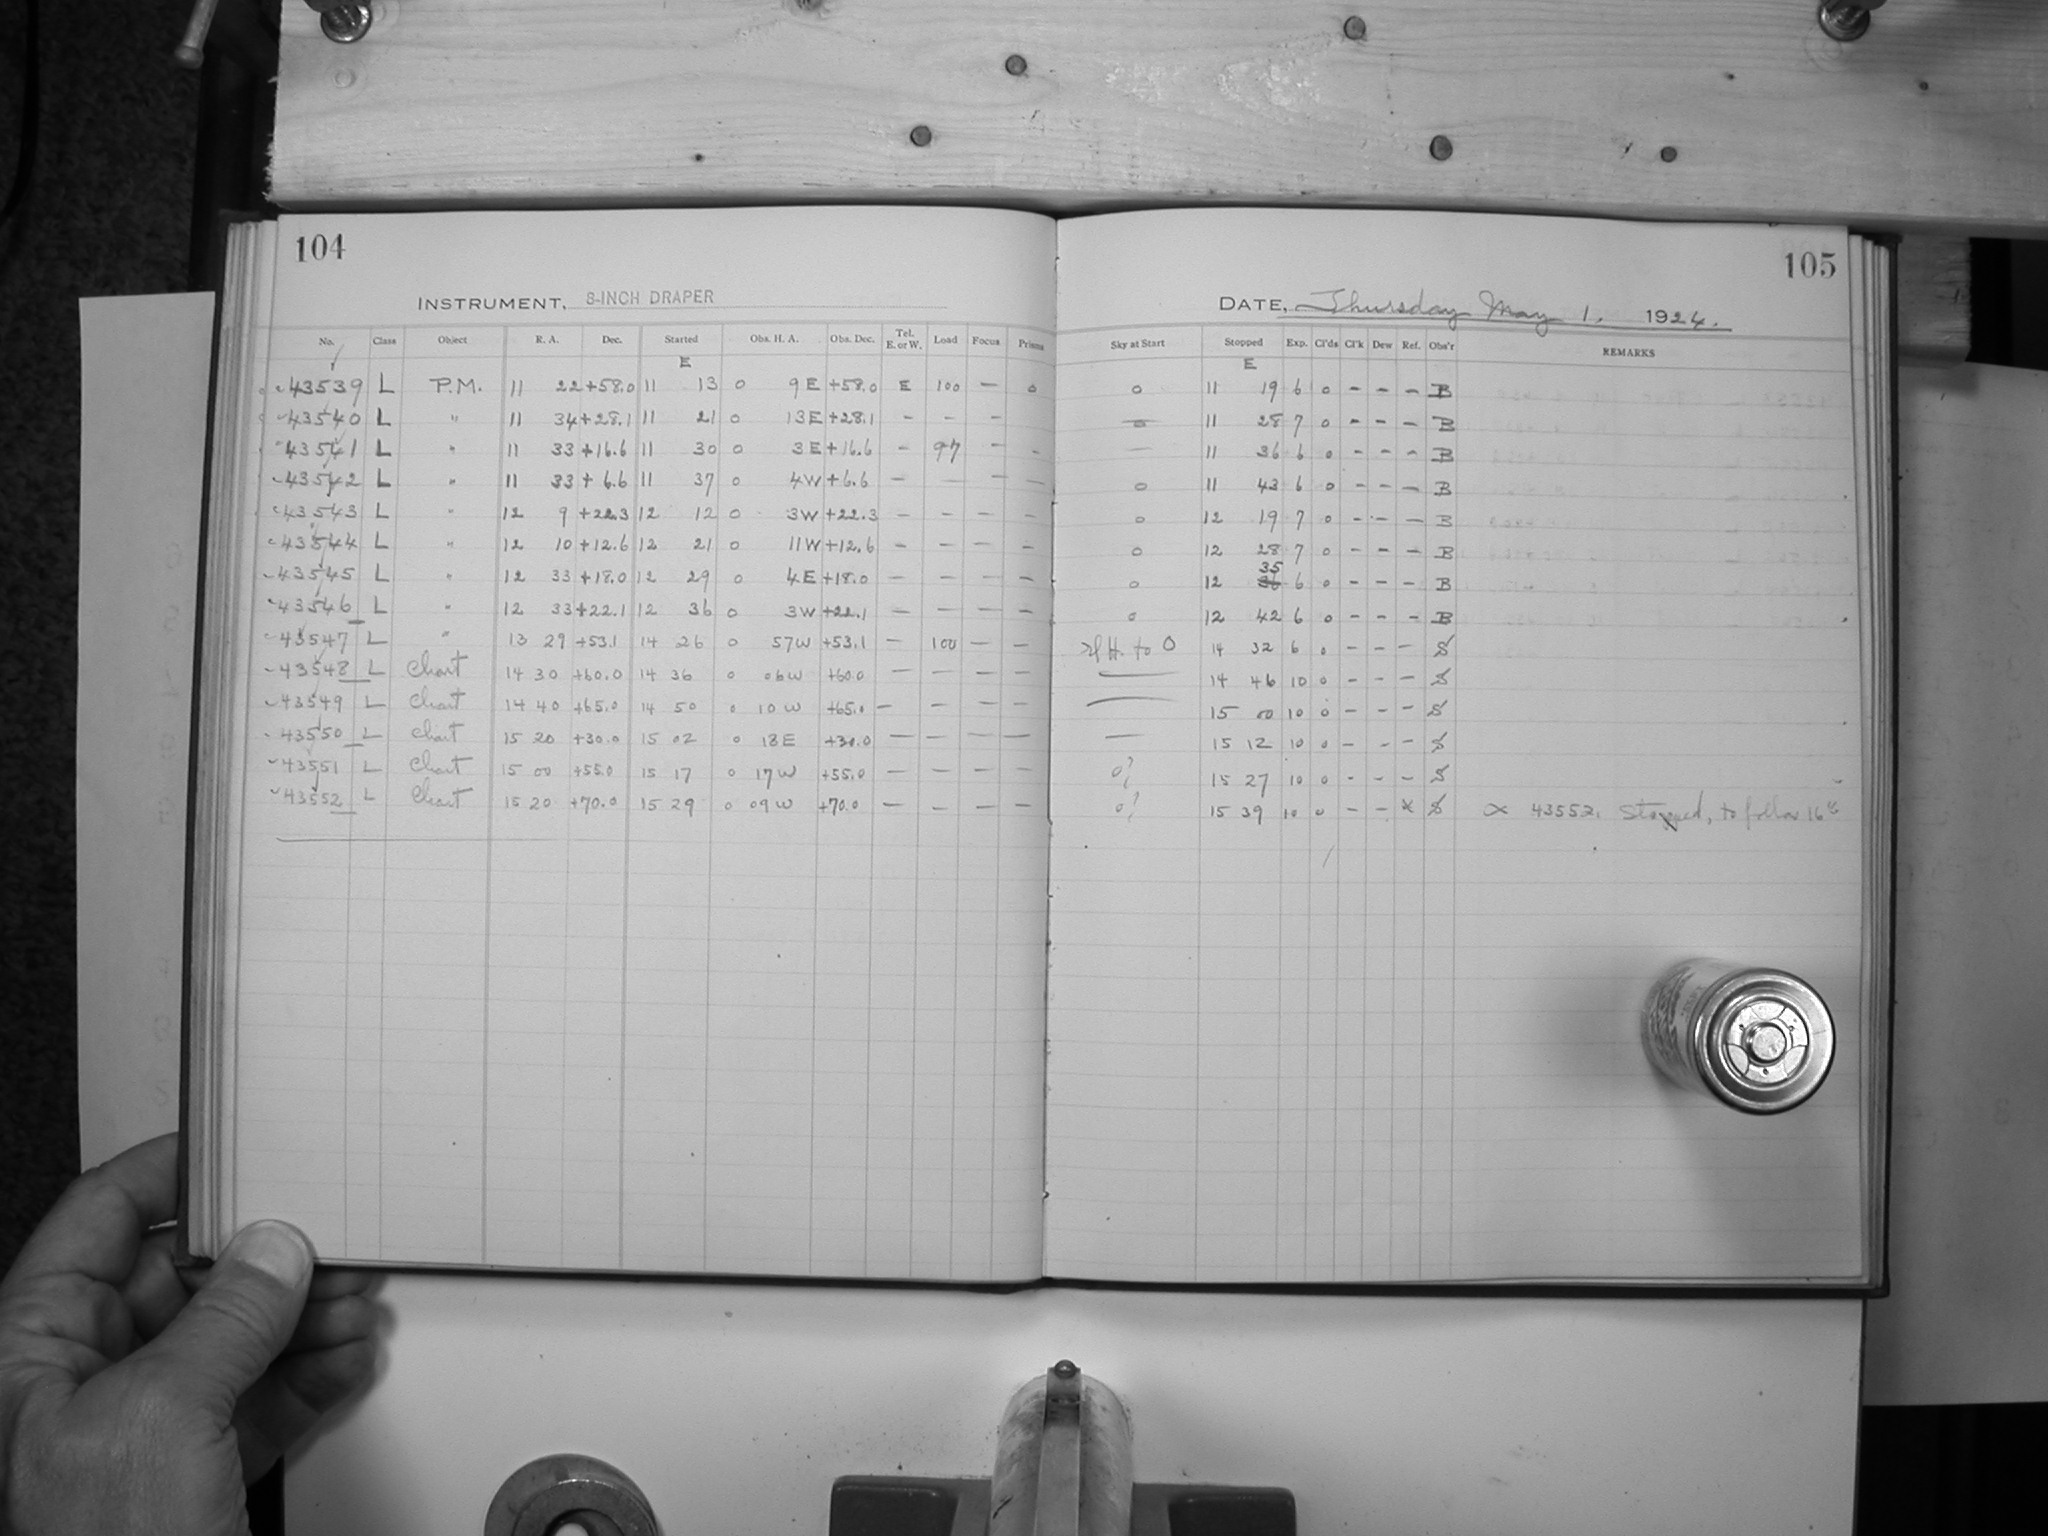 104
INSTRUMENT, 8-INCH DRAPER
No. Class Object R. A. Dec. Started Obs. H. A. Obs. Dec. Tel. E. or W. Load Focus Prisms
E
43539 L P.M. 11 22 +58.0 11 13 0 9 E +58.0 E 100 — 0
43540 L " 11 34 +28.1 11 21 0 13 E +28.1 - - -
43541 L " 11 33 +16.6 11 30 0 3 E +16.6 - 97 - -
43542 L " 11 33 + 6.6 11 37 0 4 W + 6.6 — — — —
43543 L " 12 9 +22.3 12 12 0 3 W +22.3 — — — —
43544 L " 12 10 +12.6 12 21 0 11 W +12.6 — — — —
43545 L " 12 33 +18.0 12 29 0 4 E +18.0 — — — —
43546 L " 12 33 +22.1 12 36 0 3 W +22.1 — — — —
43547 L " 13 29 +53.1 14 26 0 57 W +53.1 — 100 — —
43548 L Chart 14 30 +60.0 14 36 0 06 W +60.0 — — — —
43549 L Chart 14 40 +65.0 14 50 0 10 W +65.0 — — — —
43550 L Chart 15 20 +30.0 15 02 0 18 E +30.0 — — — —
43551 L Chart 15 00 +55.0 15 17 0 17 W +55.0 — — — —
43552 L Chart 15 20 +70.0 15 29 0 09 W +70.0 — — — —
105
DATE, Thursday May 1, 1924.
Sky at Start Stopped Exp. Cl'ds Cl'k Dew Ref. Obs'r REMARKS
E
0 11 19 6 0 - - - B
0 11 28 7 0 - - - B
— 11 36 6 0 - - - B
0 11 43 6 0 - - - B
0 12 19 7 0 - - - B
0 12 28 7 0 - - - B
0 12 36 35 6 0 - - - B
0 12 42 6 0 - - - B
H. to 0 14 32 6 0 - - - S
— 14 46 10 0 - - - S
— 15 00 10 0 - - - S
— 15 12 10 0 - - - S
0? 15 27 10 0 - - - S
0? 15 39 10 0 - - x S ∝ 43552. Stopped, to follow 16"